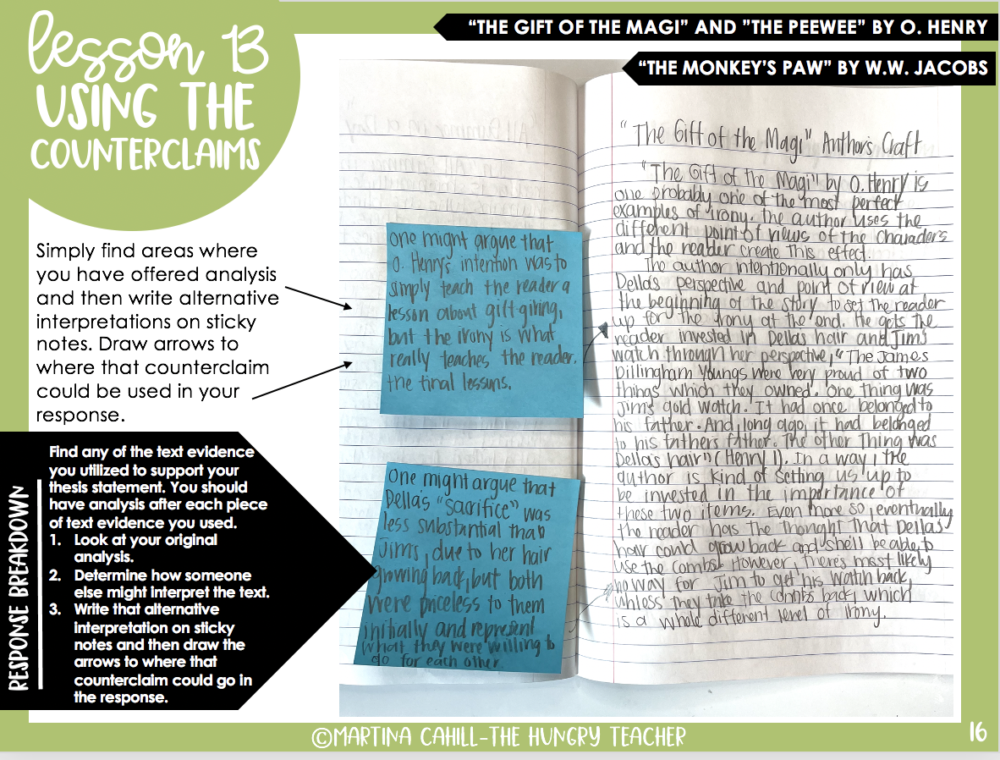 lesson 13
USING THE
COUNTERCLAIMS
"THE GIFT OF THE MAGI" AND "THE PEEWEE" BY O. HENRY
"THE MONKEY'S PAW" BY W.W. JACOBS
Simply find areas where
you have offered analysis
and then write alternative
interpretations on sticky
notes. Draw arrows to
where that counterclaim
could be used in your
response.
RESPONSE BREAKDOWN
Find any of the text evidence
you utilized to support your
thesis statement. You should
have analysis after each piece
of text evidence you used.
1. Look at your original
analysis.
2. Determine how someone
else might interpret the text.
3. Write that alternative
interpretation on sticky
notes and then draw the
arrows to where that
counterclaim could go in
the response.
One might argue that
O. Henry's intention was to
simply teach the reader a
lesson about gift giving,
but the irony is what
really teaches, the reader.
the final lessons.
One might argue that
Della's "sacrifice" was
less substantial than
Jims, due to her hair
growing back, but both
were priceless to them
initially and represent
what they were willing to
do for each other.
"The Gift of the Magi" Author's Craft
"The Gift of the Magi" by O. Henry is
one probably one of the most perfect
examples of irony. the author uses the
different point of views of the characters
and the reader create this effect.
The author intentionally only has
Della's perspective and point of view at
the beginning of the story to set the reader
up for the irony at the end. He gets the
reader invested in Della's hair and Jim's
watch through her perspective, "The James
Dillingham Youngs were very proud of two
things which they owned. One thing was
Jim's gold watch. It had once belonged to
his father. And, long ago, it had belonged
to his fathers father. The other thing was
Della's hair" (Henry 1). In a way, the
author is kind of setting us up to
be invested in the importance of
these two items. Even more so, eventually
the reader has the thought that Dellas
hair could grow back and she'll be able to
use the combs. However, theres most likely
no way for Jim to get his watch back,
unless they take the combs back, which
is a whole different level of irony.
©MARTINA CAHILL-THE HUNGRY TEACHER
16